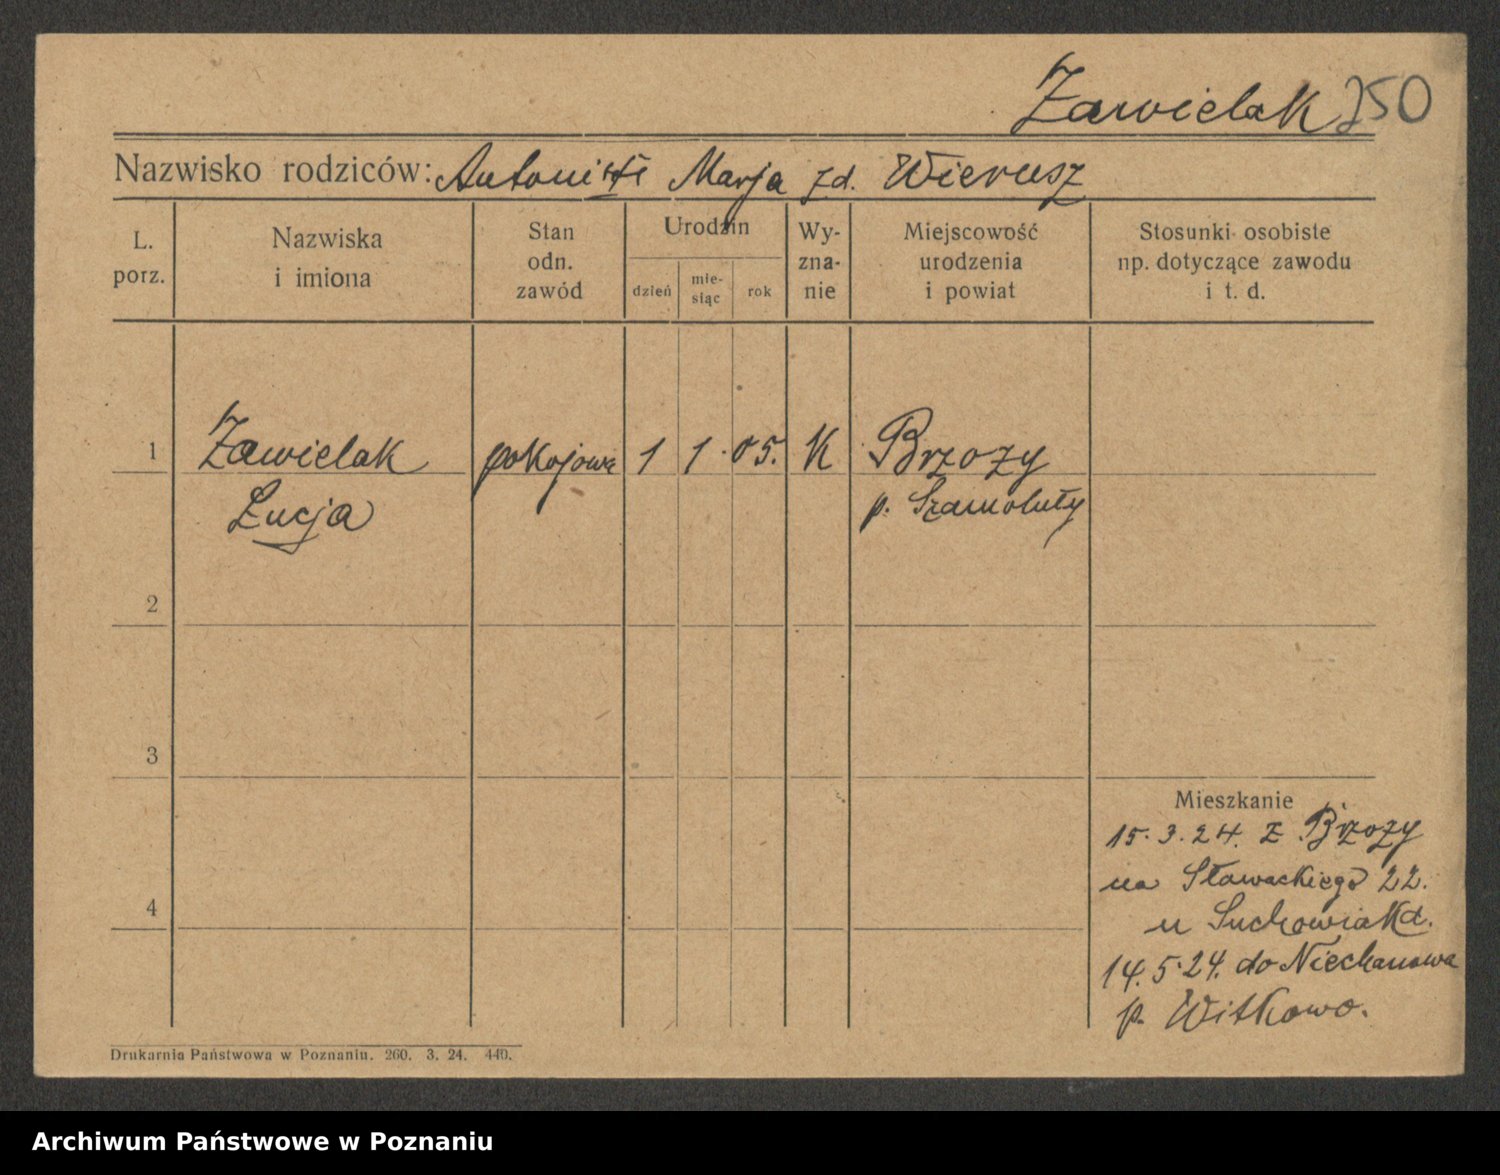 Zawielak 250
Nazwisko rodziców: Antoni i Marja zd. Wierusz
L. porz.
Nazwiska i imiona
Stan odn. zawód
Urodzin
dzień
mie-siąc
rok
Wy-zna-nie
Miejscowość urodzenia i powiat
Stosunki osobiste np. dotyczące zawodu i t. d.
1 Zawielak pokojowa 1 1. 05. K Brzozy
Łucja p. Szamotuły
2
3
Mieszkanie
15.3.24. z Brzozy
na Słowackiego 22.
4
u Suchowiakd.
14.5.24. do Niechanowa
p. Witkowo.
Drukarnia Państwowa w Poznaniu. 260. 3. 24. 440.
Archiwum Państwowe w Poznaniu